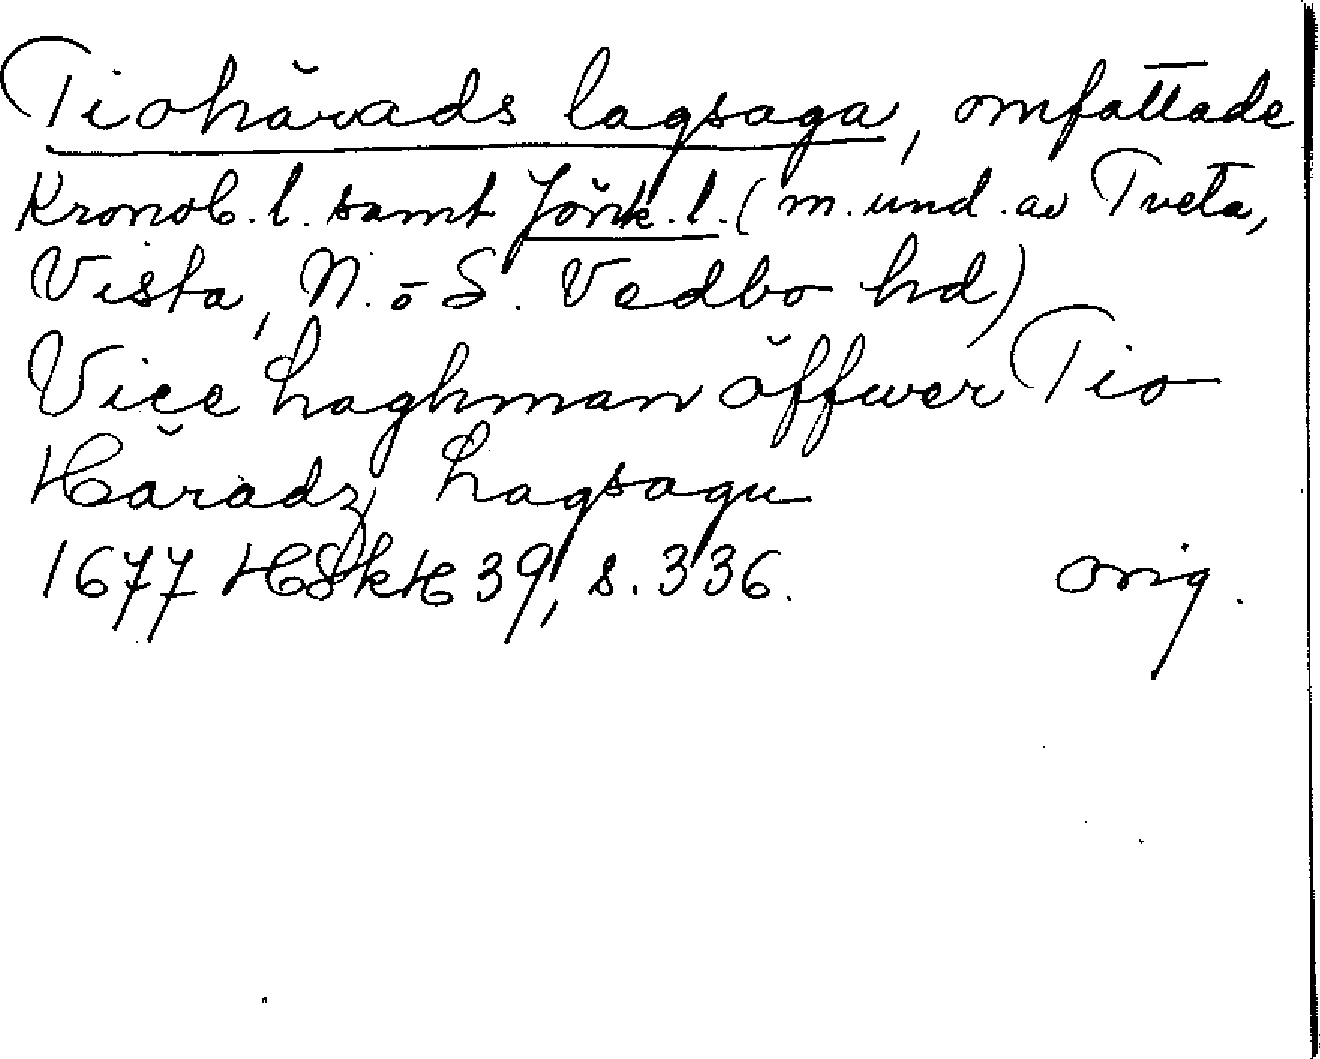 Tiohärads lagsaga, omfattade
Kronob. l. samt Jönk. l. (m. und. av Tveta,
Vista, N. o S. Vedbo hd)
Vice Laghman öffwer Tio
Häradz Lagsagu
1677 HSkH 39, s. 336. orig.